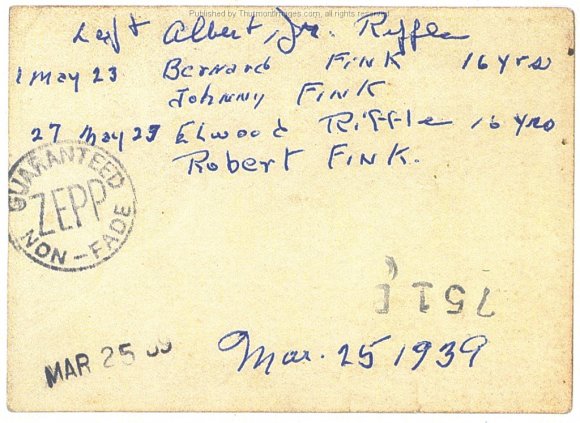 Published by Thurmontimages.com, all rights reserved
Left Albert, Jr. Riffle
1 May 23 Bernard Fink 16 yrs
Johnny Fink
27 May 23 Elwood Riffle 16 yrs
Robert Fink.
GUARANTEED
ZEPP
NON-FADE
751
MAR 25 39
Mar. 25 1939